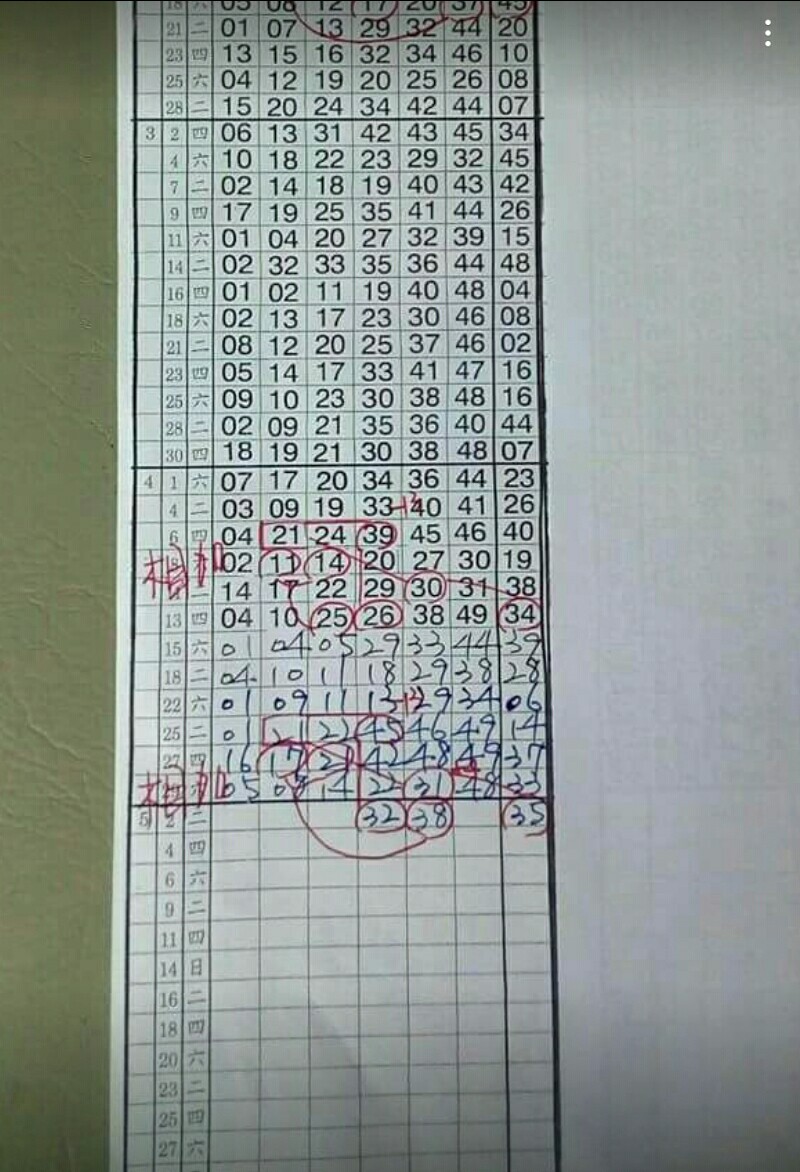 18 六 05 08 12 17 20 37 45
21 二 01 07 13 29 32 44 20
23 四 13 15 16 32 34 46 10
25 六 04 12 19 20 25 26 08
28 二 15 20 24 34 42 44 07
3 2 四 06 13 31 42 43 45 34
4 六 10 18 22 23 29 32 45
7 二 02 14 18 19 40 43 42
9 四 17 19 25 35 41 44 26
11 六 01 04 20 27 32 39 15
14 二 02 32 33 35 36 44 48
16 四 01 02 11 19 40 48 04
18 六 02 13 17 23 30 46 08
21 二 08 12 20 25 37 46 02
23 四 05 14 17 33 41 47 16
25 六 09 10 23 30 38 48 16
28 二 02 09 21 35 36 40 44
30 四 18 19 21 30 38 48 07
4 1 六 07 17 20 34 36 44 23
4 二 03 09 19 33 40 41 26
6 四 04 21 24 39 45 46 40
相扣 02 11 14 20 27 30 19
二 14 17 22 29 30 31 38
13 四 04 10 25 26 38 49 34
15 六 01 04 05 29 33 44 39
18 二 04 10 11 18 29 38 28
22 六 01 09 11 13 29 34 06
25 二 01 21 22 45 46 49 14
27 四 16 17 21 42 48 49 37
相扣 05 08 14 22 31 48 33
5 2 二 32 38 35
4 四
6 六
9 二
11 四
14 日
16 二
18 四
20 六
23 二
25 四
27 六